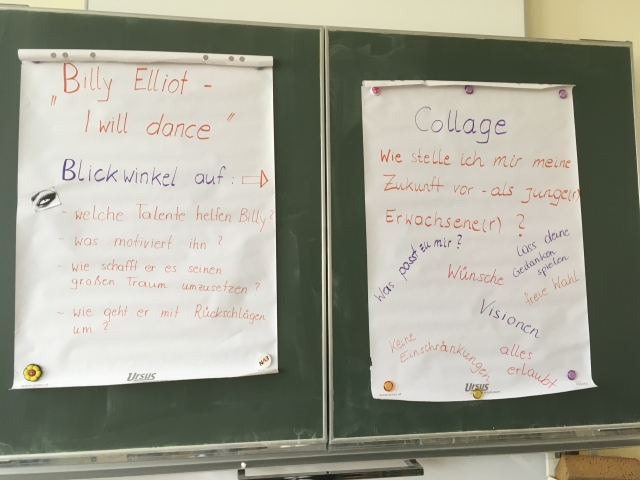 „Billy Elliot -
I will dance"
Blickwinkel auf:
- welche Talente helfen Billy?
- was motiviert ihn?
- wie schafft er es seinen
großen Traum umzusetzen?
- wie geht er mit Rückschlägen
um?
Ursus
Collage
Wie stelle ich mir meine
Zukunft vor - als junge(r)
Erwachsene(r)?
Was passt zu mir?
Lass deine
Gedanken
spielen
Wünsche
freie Wahl
Visionen
Keine
Einschränkungen
alles
erlaubt
Ursus